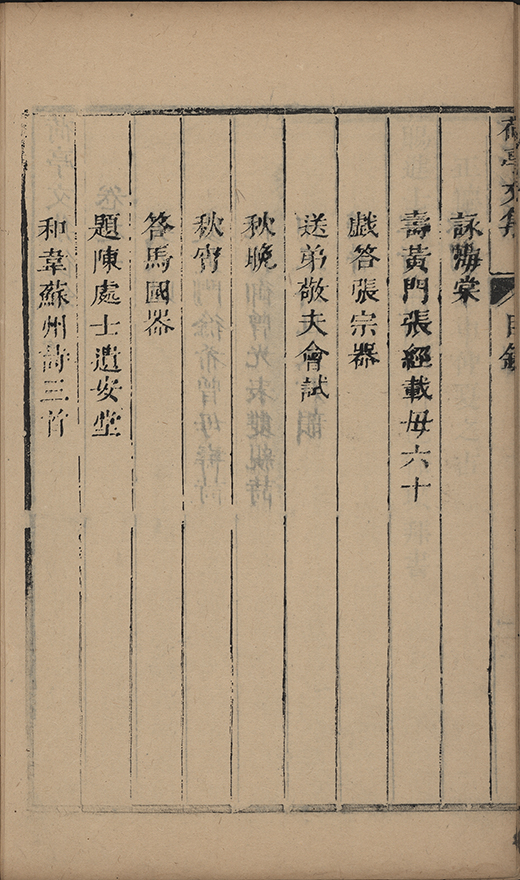 詠海棠
壽黃門張經載母六十
戲答張宗器
送弟敬夫會試
秋晚
秋宵
答馬國器
題陳處士遺安堂
和韋蘇州詩三首